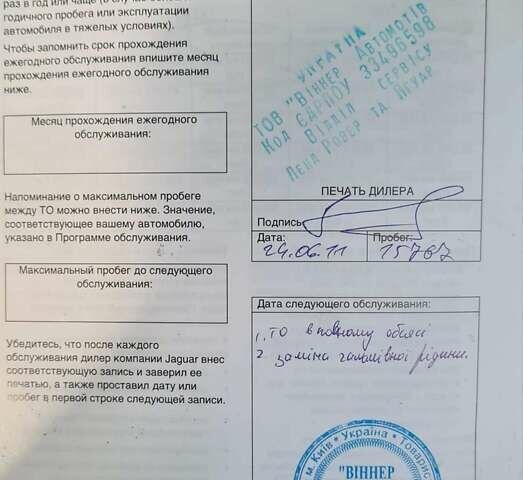 раз в год или чаще (в случае
годичного пробега или эксплуатации
автомобиля в тяжелых условиях).
Чтобы запомнить срок прохождения
ежегодного обслуживания впишите месяц
прохождения ежегодного обслуживания
ниже.
Месяц прохождения ежегодного
обслуживания:
Напоминание о максимальном пробеге
между ТО можно внести ниже. Значение,
соответствующее вашему автомобилю,
указано в Программе обслуживания.
Максимальный пробег до следующего
обслуживания:
Убедитесь, что после каждого
обслуживания дилер компании Jaguar внес
соответствующую запись и заверил ее
печатью, а также проставил дату или
пробег в первой строке следующей записи.
УКРАЇНА
ТОВ "ВІННЕР АВТОМОТІВ
Код ЄДРПОУ 33496598
ВІДДІЛ СЕРВІСУ
ЛЕНД РОВЕР ТА ЯГУАР
ПЕЧАТЬ ДИЛЕРА
Подпись
Дата: Пробег:
24.06.11 15767
Дата следующего обслуживания:
1. ТО в повному обсязі
2. заміна гальмівної рідини.
м. Київ * Україна * Товарис
"ВІННЕР